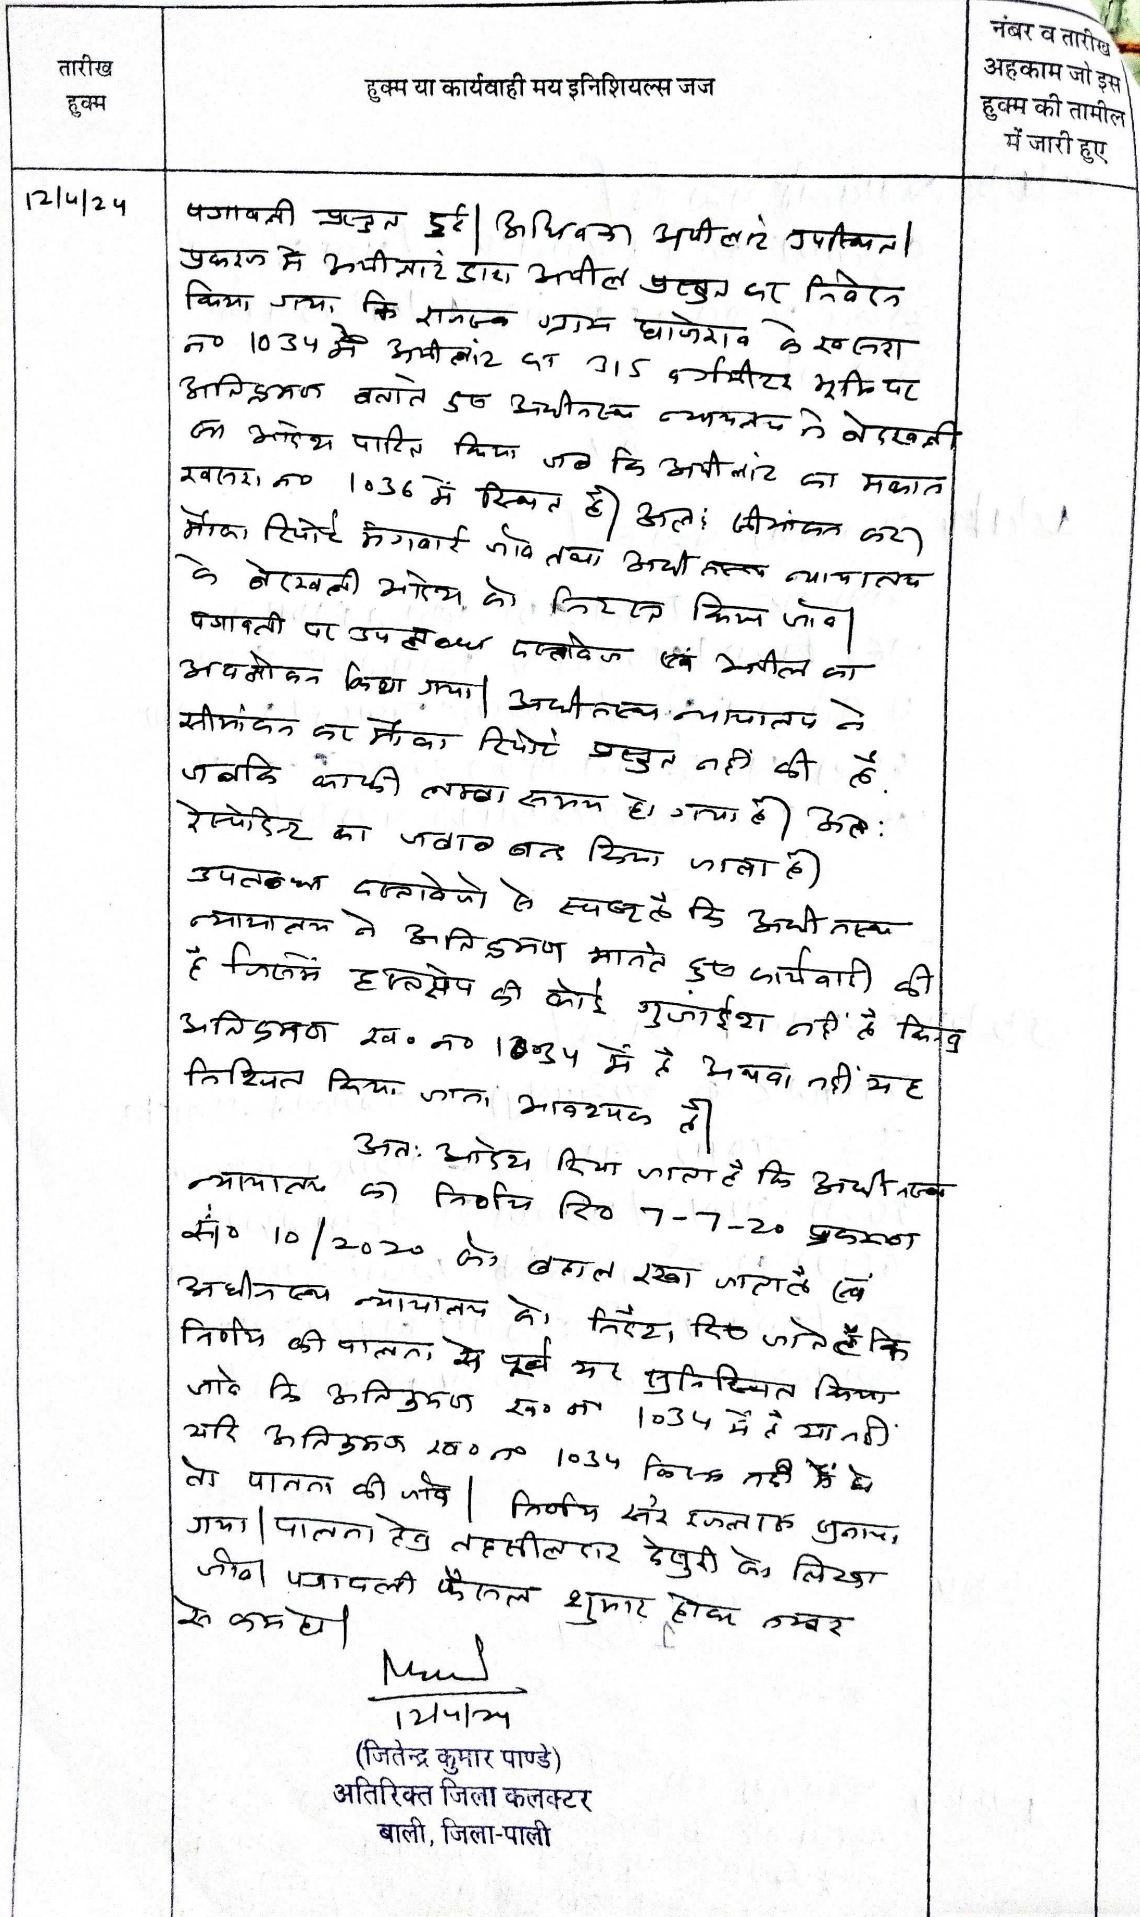 तारीख
हुक्म
हुक्म या कार्यवाही मय इनिशियल्स जज
नंबर व तारीख
अहकाम जो इस
हुक्म की तामील
में जारी हुए
12/4/24
पत्रावली प्रस्तुत हुई। अधिवक्ता अपीलांट उपस्थित।
प्रकरण में अपीलांट द्वारा अपील प्रस्तुत कर निवेदन
किया गया कि राजस्व ग्राम घाणेराव के खसरा
न० 1034 में अपीलांट का 315 वर्गमीटर भूमि पर
अतिक्रमण बताते हुए अधीनस्थ न्यायालय ने बेदखली
का आदेश पारित किया जब कि अपीलांट का मकान
खसरा न० 1036 में स्थित है। अतः सीमांकन करा
मौका रिपोर्ट मंगवाई जावे तथा अधीनस्थ न्यायालय
के बेदखली आदेश को निरस्त किया जावे।
पत्रावली पर उपलब्ध दस्तावेज एवं अपील का
अवलोकन किया गया। अधीनस्थ न्यायालय ने
सीमांकन कर मौका रिपोर्ट प्रस्तुत नहीं की है
जबकि काफी लम्बा समय हो गया है। अतः
रेस्पोडेन्ट का जवाब बन्द किया जाता है।
उपलब्ध दस्तावेजो से स्पष्ट है कि अधीनस्थ
न्यायालय ने अतिक्रमण मानते हुए कार्यवाही की
है जिसमें हस्तक्षेप की कोई गुंजाईश नहीं है किन्तु
अतिक्रमण ख० न० 1034 में है अथवा नहीं यह
निश्चित किया जाना आवश्यक है।
अतः आदेश दिया जाता है कि अधीनस्थ
न्यायालय का निर्णय दि० 7-7-20 प्रकरण
सं० 10/2020 को बहाल रखा जाता है एवं
अधीनस्थ न्यायालय को निर्देश दिए जाते हैं कि
निर्णय की पालना से पूर्व यह सुनिश्चित किया
जावे कि अतिक्रमण ख० न० 1034 में है या नहीं
यदि अतिक्रमण ख० न० 1034 में है
तो पालना की जावे। निर्णय सरे इजलास सुनाया
गया। पालना हेतु तहसीलदार देसुरी को लिखा
जावे। पत्रावली फैसल शुमार होकर नम्बर
से कम हो।
12/4/24
(जितेन्द्र कुमार पाण्डे)
अतिरिक्त जिला कलक्टर
बाली, जिला-पाली